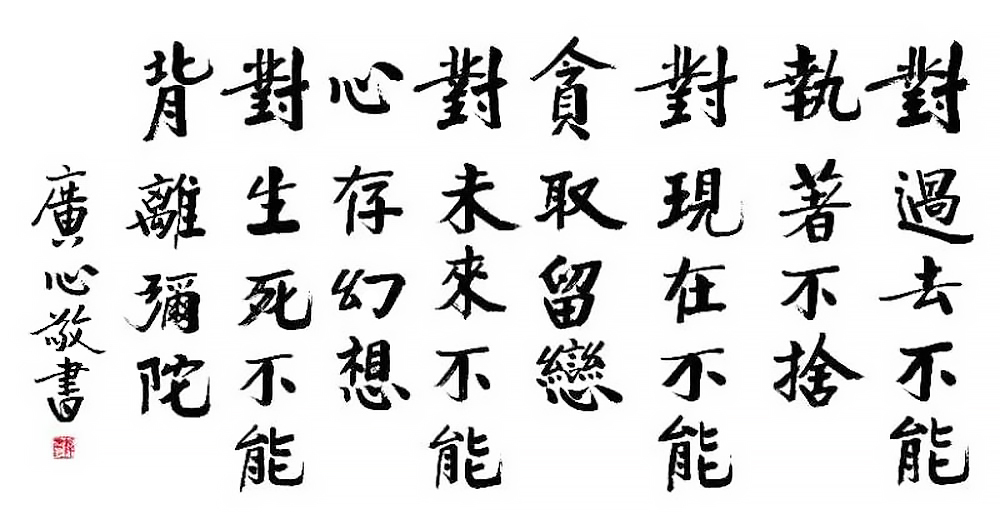 對過去不能
執著不捨
對現在不能
貪取留戀
對未來不能
心存幻想
對生死不能
背離彌陀
廣心敬書